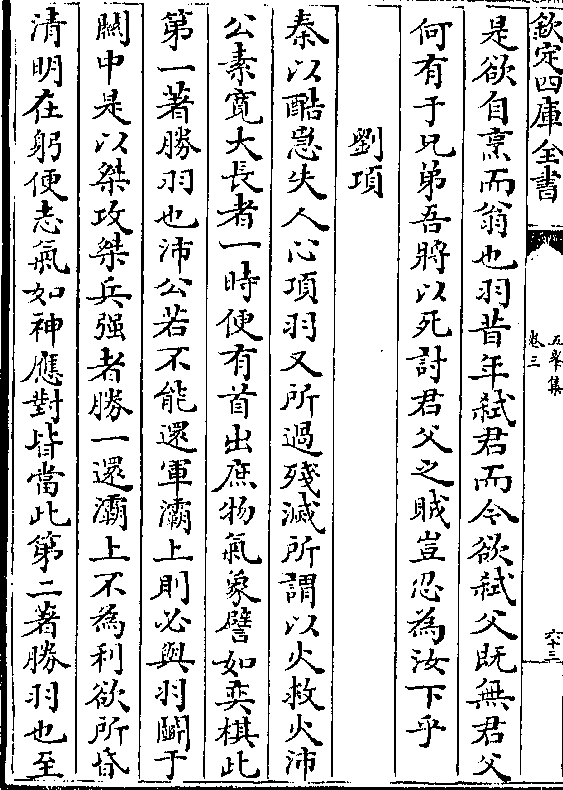 欽定四庫全書
五峯集
卷三
六十三
是欲自烹而翁也羽昔年弑君而今欲弑父既無君父
何有于兄弟吾將以死討君父之賊豈忍為汝下乎
劉項
秦以酷愳失人心項羽又所過殘滅所謂以火救火沛
公素寛大長者一時便有首出庶物氣象譬如奕棋此
第一著勝羽也沛公若不能還軍灞上則必與羽鬭于
闗中是以桀攻桀兵强者勝一還灞上不為利欲所昏
清明在躬便志氣如神應對皆當此第二著勝羽也至